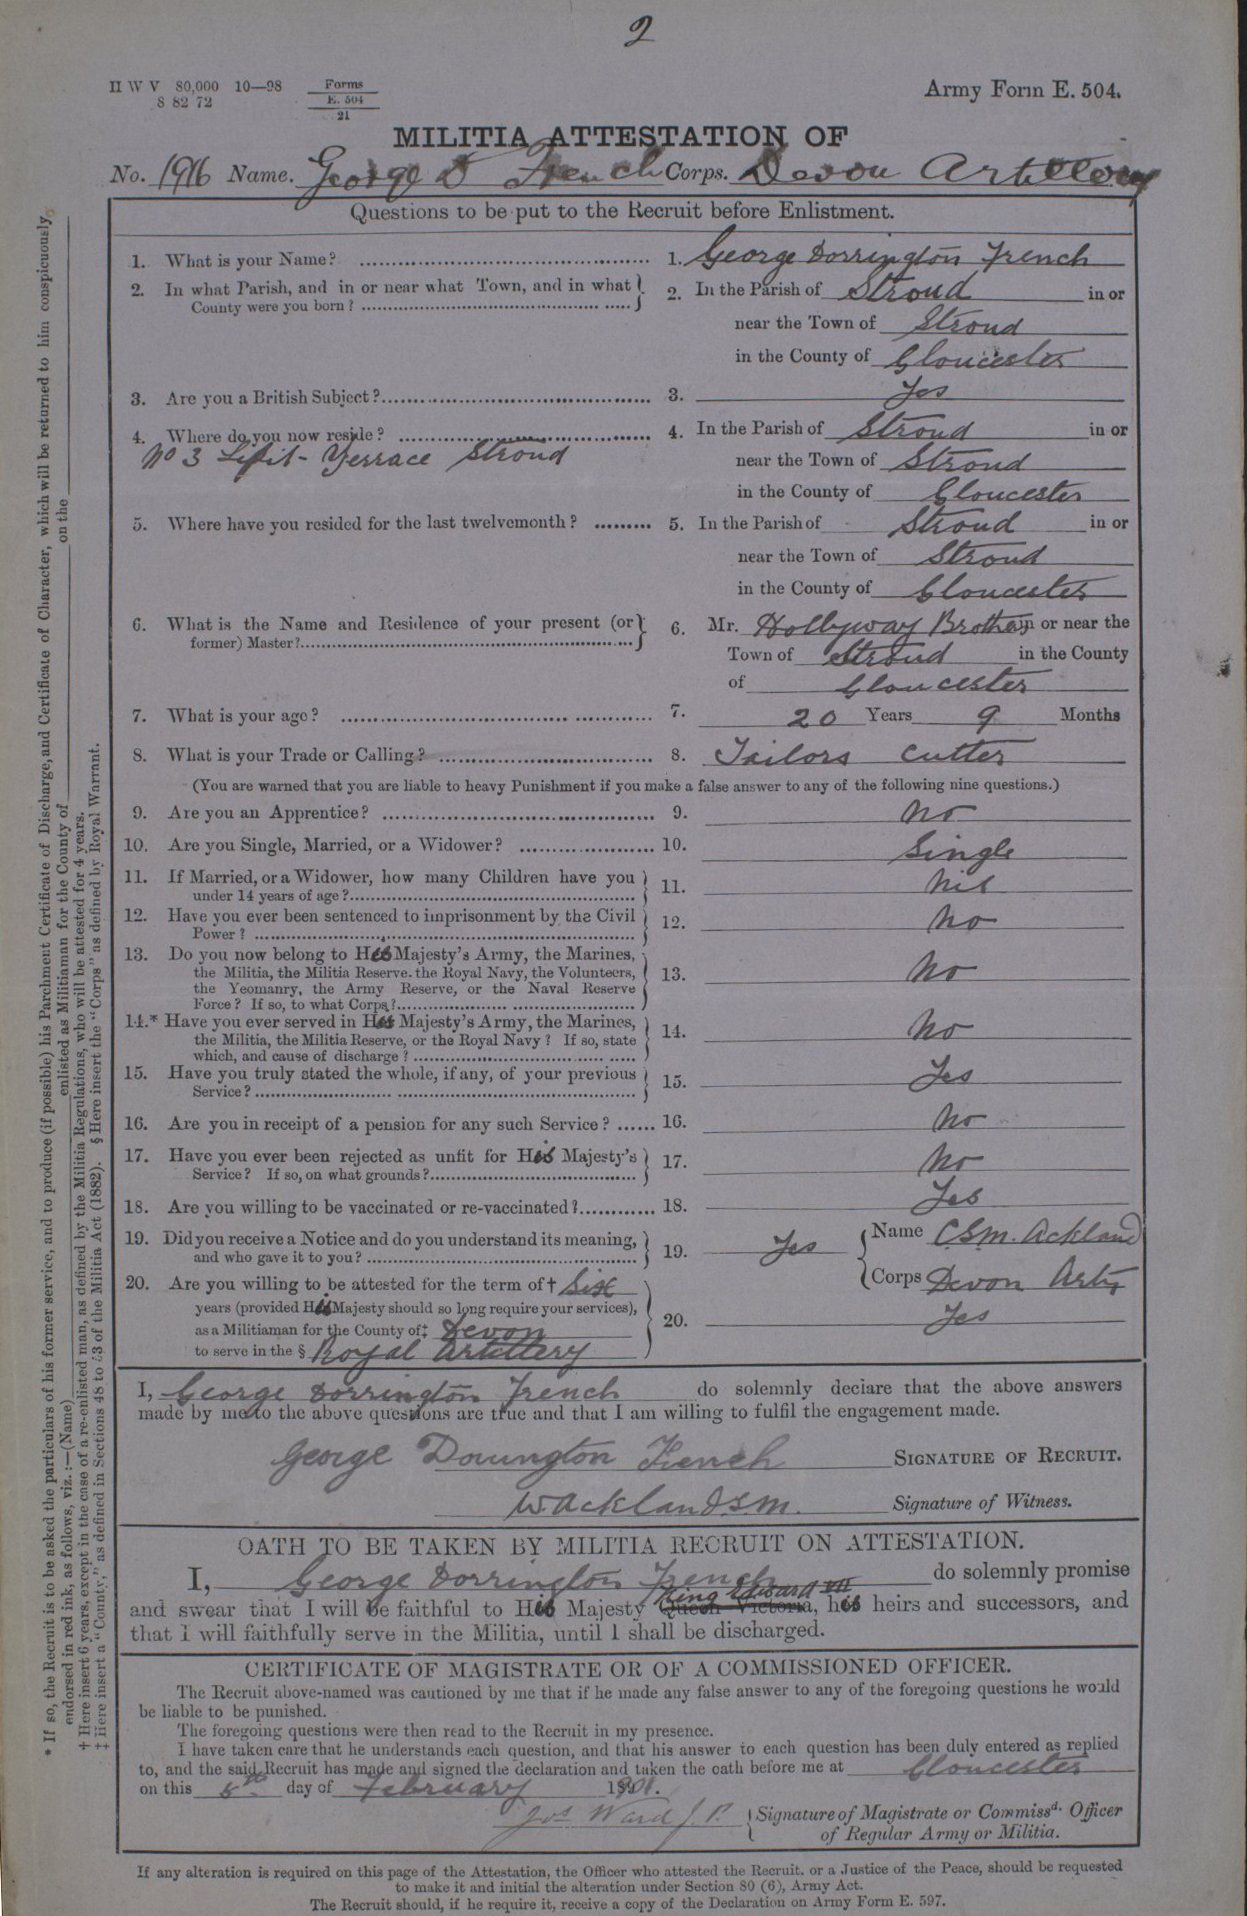 2
H W V 80,000 10—98 Forms
8 82 72 E. 504
21
Army Form E. 504.
MILITIA ATTESTATION OF
No. 1916 Name. George D French Corps. Devon Artillery
Questions to be put to the Recruit before Enlistment.
1. What is your Name? 1. George Dorrington French
2. In what Parish, and in or near what Town, and in what 2. In the Parish of Stroud in or
County were you born?
near the Town of Stroud
in the County of Gloucester
3. Are you a British Subject? 3. Yes
4. Where do you now reside? 4. In the Parish of Stroud in or
No 3 Terrace Stroud near the Town of Stroud
in the County of Gloucester
5. Where have you resided for the last twelvemonth? 5. In the Parish of Stroud in or
near the Town of Stroud
in the County of Gloucester
6. What is the Name and Residence of your present (or 6. Mr. Brothers in or near the
former) Master?
Town of Stroud in the County
of Gloucester
7. What is your age? 7. 20 Years 9 Months
8. What is your Trade or Calling? 8. Tailors Cutter
(You are warned that you are liable to heavy Punishment if you make a false answer to any of the following nine questions.)
9. Are you an Apprentice? 9. No
10. Are you Single, Married, or a Widower? 10. Single
11. If Married, or a Widower, how many Children have you
under 14 years of age? 11. Nil
12. Have you ever been sentenced to imprisonment by the Civil
Power? 12. No
13. Do you now belong to His Majesty's Army, the Marines,
the Militia, the Militia Reserve, the Royal Navy, the Volunteers,
the Yeomanry, the Army Reserve, or the Naval Reserve
Force? If so, to what Corps? 13. No
14.* Have you ever served in His Majesty's Army, the Marines,
the Militia, the Militia Reserve, or the Royal Navy? If so, state
which, and cause of discharge? 14. No
15. Have you truly stated the whole, if any, of your previous
Service? 15. Yes
16. Are you in receipt of a pension for any such Service? 16. No
17. Have you ever been rejected as unfit for His Majesty's
Service? If so, on what grounds? 17. No
18. Are you willing to be vaccinated or re-vaccinated? 18. Yes
19. Did you receive a Notice and do you understand its meaning,
and who gave it to you? 19. Yes Name C.S.M. Ackland
Corps Devon Arty
20. Are you willing to be attested for the term of† Six
years (provided His Majesty should so long require your services),
as a Militiaman for the County of‡ Devon
to serve in the § Royal Artillery 20. Yes
I, George Dorrington French do solemnly declare that the above answers
made by me to the above questions are true and that I am willing to fulfil the engagement made.
George Dorrington French SIGNATURE OF RECRUIT.
W Ackland S.M. Signature of Witness.
OATH TO BE TAKEN BY MILITIA RECRUIT ON ATTESTATION.
I, George Dorrington French do solemnly promise
and swear that I will be faithful to His Majesty King Edward VII Queen Victoria, his heirs and successors, and
that I will faithfully serve in the Militia, until I shall be discharged.
CERTIFICATE OF MAGISTRATE OR OF A COMMISSIONED OFFICER.
The Recruit above-named was cautioned by me that if he made any false answer to any of the foregoing questions he would
be liable to be punished.
The foregoing questions were then read to the Recruit in my presence.
I have taken care that he understands each question, and that his answer to each question has been duly entered as replied
to, and the said Recruit has made and signed the declaration and taken the oath before me at Gloucester
on this 8th day of February 1901.
Jos Ward J.P. Signature of Magistrate or Commissd. Officer
of Regular Army or Militia.
If any alteration is required on this page of the Attestation, the Officer who attested the Recruit, or a Justice of the Peace, should be requested
to make it and initial the alteration under Section 80 (6), Army Act.
The Recruit should, if he require it, receive a copy of the Declaration on Army Form E. 597.
* If so, the Recruit is to be asked the particulars of his former service, and to produce (if possible) his Parchment Certificate of Discharge, and Certificate of Character, which will be returned to him conspicuously
endorsed in red ink, as follows, viz.:—(Name) enlisted as Militiaman for the County of on the
† Here insert 6 years, except in the case of a re-enlisted man, as defined by the Militia Regulations, who will be attested for 4 years.
‡ Here insert a "County," as defined in Sections 48 to 53 of the Militia Act (1882). § Here insert the "Corps" as defined by Royal Warrant.